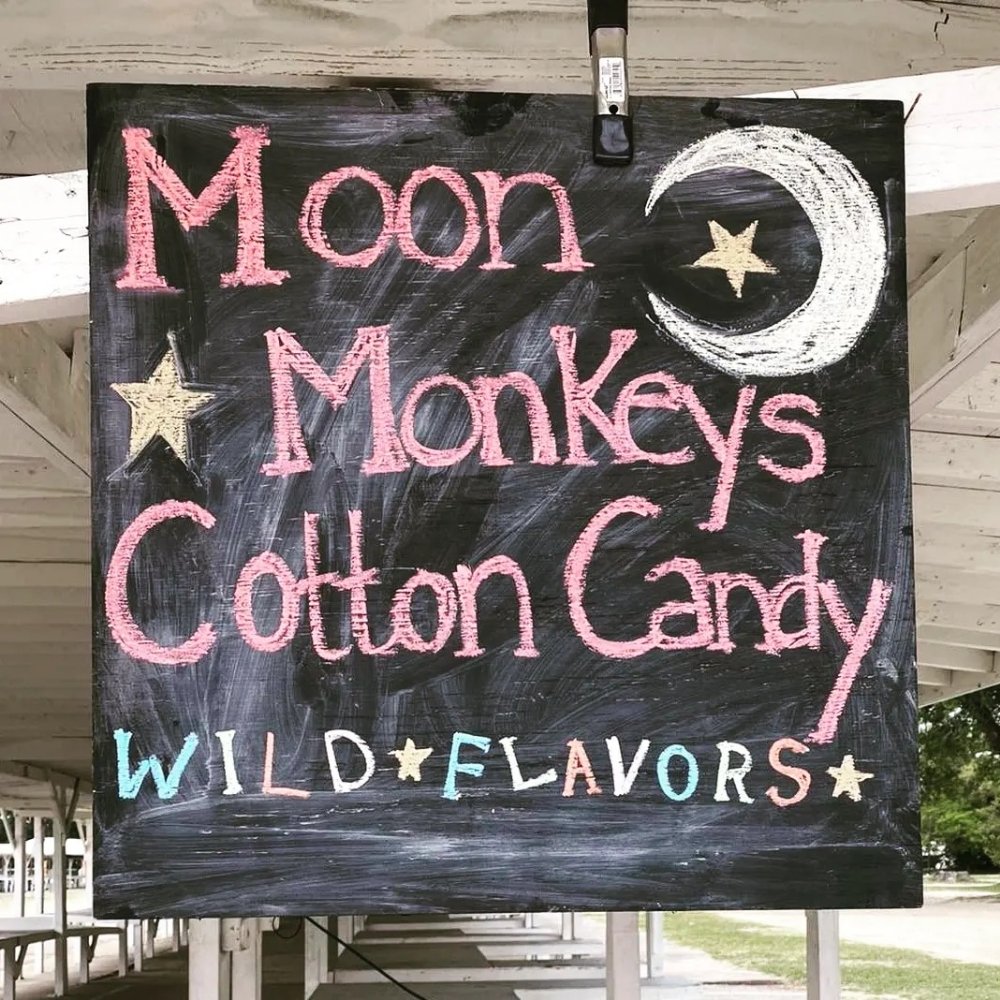 Moon
Monkeys
Cotton Candy
WILD FLAVORS